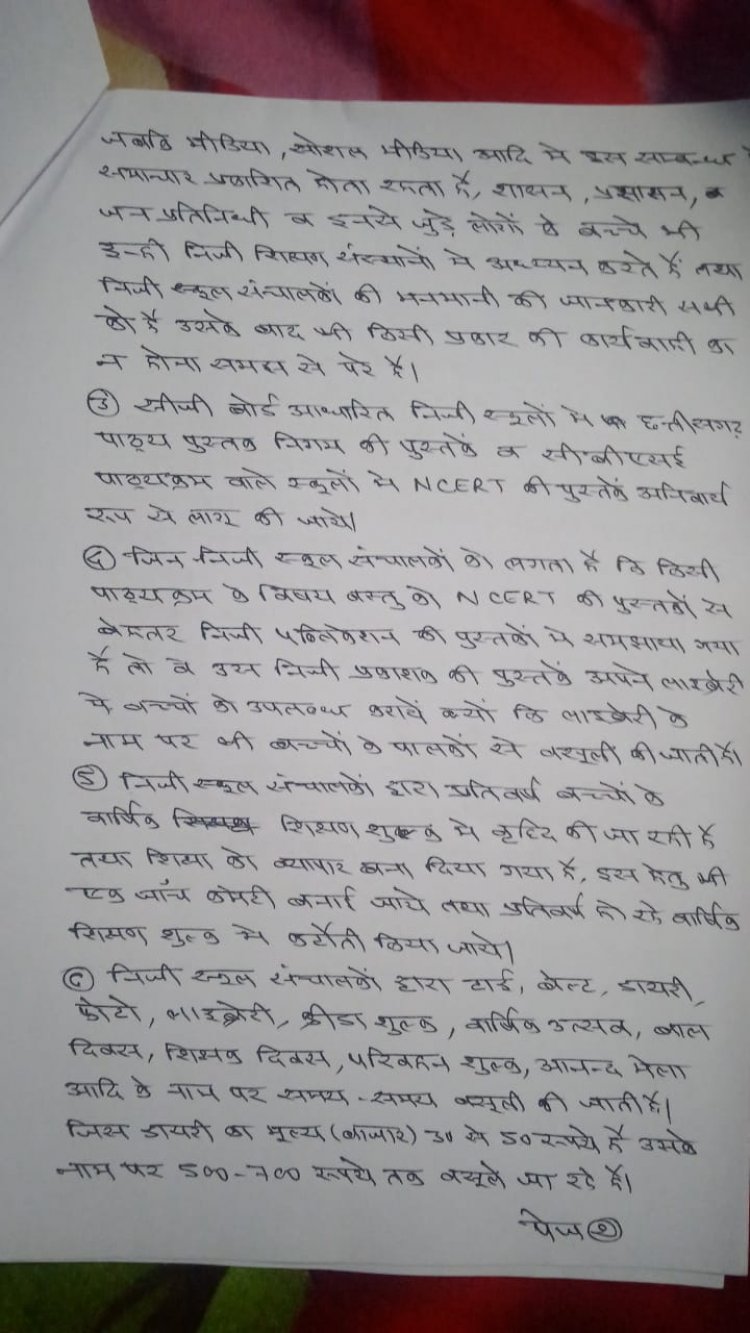 जबकि मीडिया, सोशल मीडिया आदि मे इस सम्बन्ध मे
समाचार प्रकाशित होता रहता है, शासन, प्रशासन, व
जन प्रतिनिधी व इनसे जुड़े लोगों के बच्चे भी
इन्ही निजी शिक्षण संस्थानों मे अध्ययन करते हैं तथा
निजी स्कूल संचालकों की मनमानी की जानकारी सभी
को है उसके बाद भी किसी प्रकार की कार्यवाही का
न होना समझ से परे है।
③ सीजी बोर्ड आधारित निजी स्कूलों मे छत्तीसगढ़
पाठ्य पुस्तक निगम की पुस्तकें व सीबीएसई
पाठ्यक्रम वाले स्कूलों मे NCERT की पुस्तकें अनिवार्य
रूप से लागू की जाये।
④ जिन निजी स्कूल संचालकों को लगता है कि किसी
पाठ्यक्रम के विषय वस्तु को NCERT की पुस्तकों से
बेहतर निजी पब्लिकेशन की पुस्तकों मे समझाया गया
है तो वे उस निजी प्रकाशक की पुस्तकें अपने लाइब्रेरी
मे बच्चों को उपलब्ध करावें क्यों कि लाइब्रेरी के
नाम पर भी बच्चों के पालकों से वसूली की जाती है।
⑤ निजी स्कूल संचालकों द्वारा प्रतिवर्ष बच्चों के
वार्षिक शिक्षण शुल्क मे वृद्दि की जा रही है
तथा शिक्षा को व्यापार बना दिया गया है, इस हेतु भी
एक जाँच कमेटी बनाई जाये तथा प्रतिवर्ष हो रहे वार्षिक
शिक्षण शुल्क मे कटौती किया जाये।
⑥ निजी स्कूल संचालकों द्वारा टाई, बेल्ट, डायरी,
फोटो, लाइब्रेरी, क्रीडा शुल्क, वार्षिक उत्सव, बाल
दिवस, शिक्षक दिवस, परिवहन शुल्क, आनन्द मेला
आदि के नाम पर समय-समय वसूली की जाती है।
जिस डायरी का मूल्य (बाजार) 30 से 50 रूपये है उसके
नाम पर 500-700 रूपये तक वसूले जा रहे है।
पेज ②